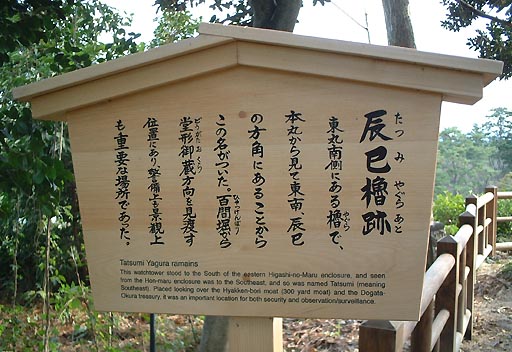 辰巳櫓跡
たつみ やぐらあと
東丸南側にある櫓で、
やぐら
本丸から見て東南、辰巳
の方角にあることから
この名がついた。百間堀から
ひゃっけんぼり
堂形御蔵方向を見渡す
どうがたおくら
位置にあり警備上も景観上
も重要な場所であった。
Tatsumi Yagura ramains
This watchtower stood to the South of the eastern Higashi-no-Maru enclosure, and seen
from the Hon-maru enclosure was to the Southeast, and so was named Tatsumi (meaning
Southeast). Placed looking over the Hyakken-bori moat (300 yard moat) and the Dogata-
Okura treasury, it was an important location for both security and observation/surveillance.